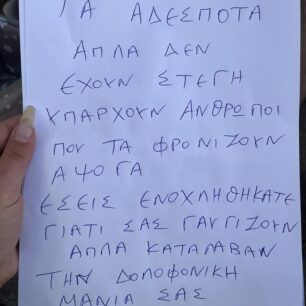 ΤΑ ΑΔΕΣΠΟΤΑ
ΑΠΛΑ ΔΕΝ
ΕΧΟΥΝ ΣΤΕΓΗ
ΥΠΑΡΧΟΥΝ ΑΝΘΡΩΠΟΙ
ΠΟΥ ΤΑ ΦΡΟΝΙΖΟΥΝ
ΑΨΟΓΑ
ΕΣΕΙΣ ΕΝΟΧΛΗΘΗΚΑΤΕ
ΓΙΑΤΙ ΣΑΣ ΓΑΥΓΙΖΟΥΝ
ΑΠΛΑ ΚΑΤΑΛΑΒΑΝ
ΤΗΝ ΔΟΛΟΦΟΝΙΚΗ
ΜΑΝΙΑ ΣΑΣ